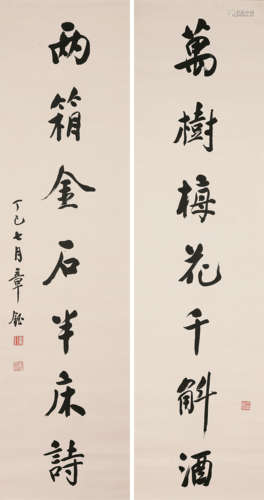 萬樹梅花千斛酒
两箱金石半床詩
丁巳七月章鈺